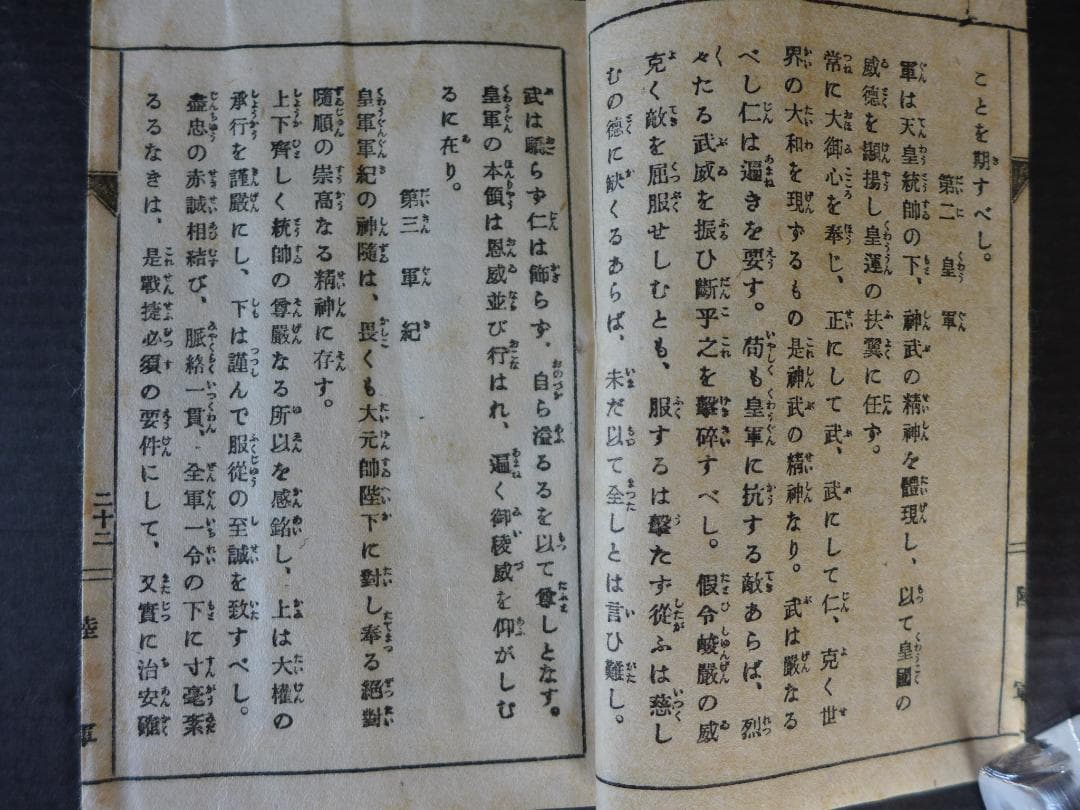 ことを期すべし。
第二 皇軍
軍は天皇統帥の下、神武の精神を體現し、以て皇國の
威德を顯揚し皇運の扶翼に任ず。
常に大御心を奉じ、正にして武、武にして仁、克く世
界の大和を現ずるもの是神武の精神なり。武は嚴なる
べし仁は遍きを要す。苟も皇軍に抗する敵あらば、烈
々たる武威を振ひ斷乎之を擊碎すべし。假令峻嚴の威
克く敵を屈服せしむとも、服するは擊たず從ふは慈し
むの德に缺くるあらば、未だ以て全しとは言ひ難し。
武は驕らず仁は飾らず、自ら溢るるを以て尊しとなす。
皇軍の本領は恩威並び行はれ、遍く御稜威を仰がしむ
るに在り。
第三 軍紀
皇軍軍紀の神隨は、畏くも大元帥陛下に對し奉る絕對
隨順の崇高なる精神に存す。
上下齊しく統帥の尊嚴なる所以を感銘し、上は大權の
承行を謹嚴にし、下は謹んで服從の至誠を致すべし。
盡忠の赤誠相結び、脈絡一貫、全軍一令の下に寸毫紊
るるなきは、是戰捷必須の要件にして、又實に治安確
二十二
陸軍